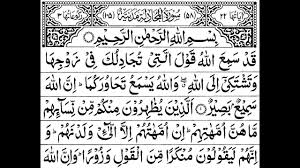 اٰيَاتُهَا ٢٢ (٥٨) سُوْرَةُ الْمُجَادَلَةِ مَدَنِيَّةٌ (١٠٥) رُكُوْعَاتُهَا ٣
بِسْمِ اللّٰهِ الرَّحْمٰنِ الرَّحِيْمِ
قَدْ سَمِعَ اللّٰهُ قَوْلَ الَّتِيْ تُجَادِلُكَ فِيْ زَوْجِهَا
وَتَشْتَكِيْٓ اِلَى اللّٰهِ ۖ وَاللّٰهُ يَسْمَعُ تَحَاوُرَكُمَا ؕ اِنَّ اللّٰهَ
سَمِيْعٌۢ بَصِيْرٌ ۝ اَلَّذِيْنَ يُظٰهِرُوْنَ مِنْكُمْ مِّنْ نِّسَآئِهِمْ
مَّا هُنَّ اُمَّهٰتِهِمْ ؕ اِنْ اُمَّهٰتُهُمْ اِلَّا الّٰٓئِيْ وَلَدْنَهُمْ ؕ وَ
اِنَّهُمْ لَيَقُوْلُوْنَ مُنْكَرًا مِّنَ الْقَوْلِ وَزُوْرًا ؕ وَاِنَّ اللّٰهَ